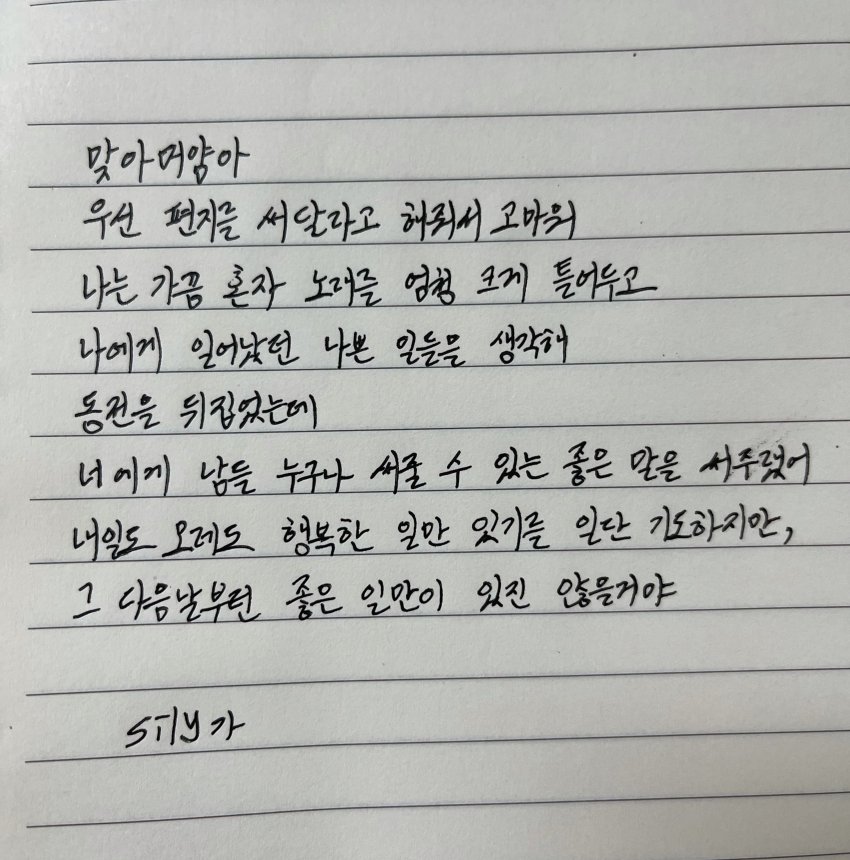 맞아머얌아
우선 편지를 써달라고 해줘서 고마워
나는 가끔 혼자 노래를 엄청 크게 틀어두고
나에게 일어났던 나쁜 일들을 생각해
동전을 뒤집었는데
너에게 남들 누구나 써줄 수 있는 좋은 말을 써주렸어
내일도 모레도 행복한 일만 있기를 일단 기도하지만,
그 다음날부턴 좋은 일만이 있진 않을거야
STLY가